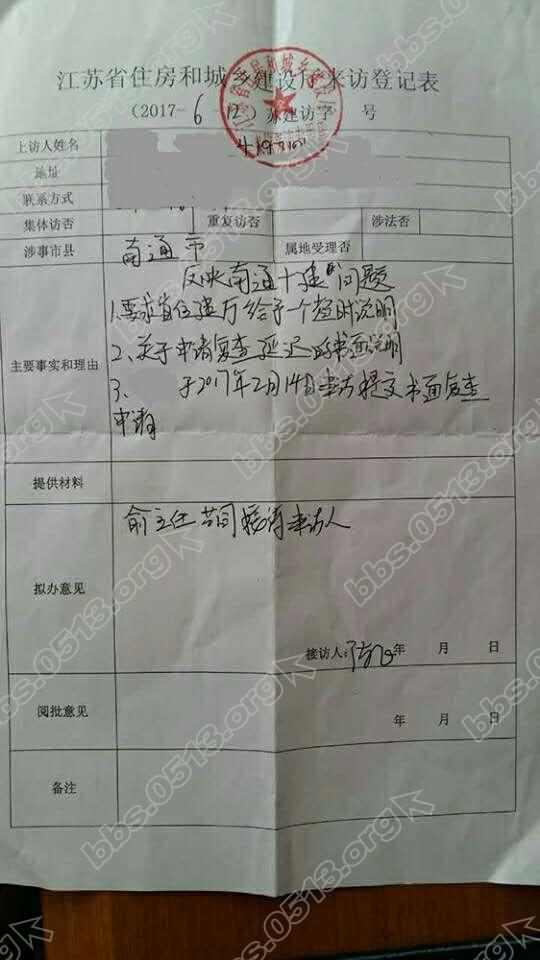 江苏省住房和城乡建设厅来访登记表
(2017-6 12) 苏建访字 号
上访人姓名
地址
联系方式
集体访否 重复访否 涉法否
涉事市县 南通市 属地受理否
主要事实和理由
反映南通十建的问题
1.要求省住建厅给予一个超时说明
2、关于申请复查延迟的书面说明
3、 于2017年2月14日来访提交书面复查
申请
提供材料
拟办意见
俞主任共同接待来访人
接访人: 年 月 日
阅批意见
年 月 日
备注
bbs.0513.org